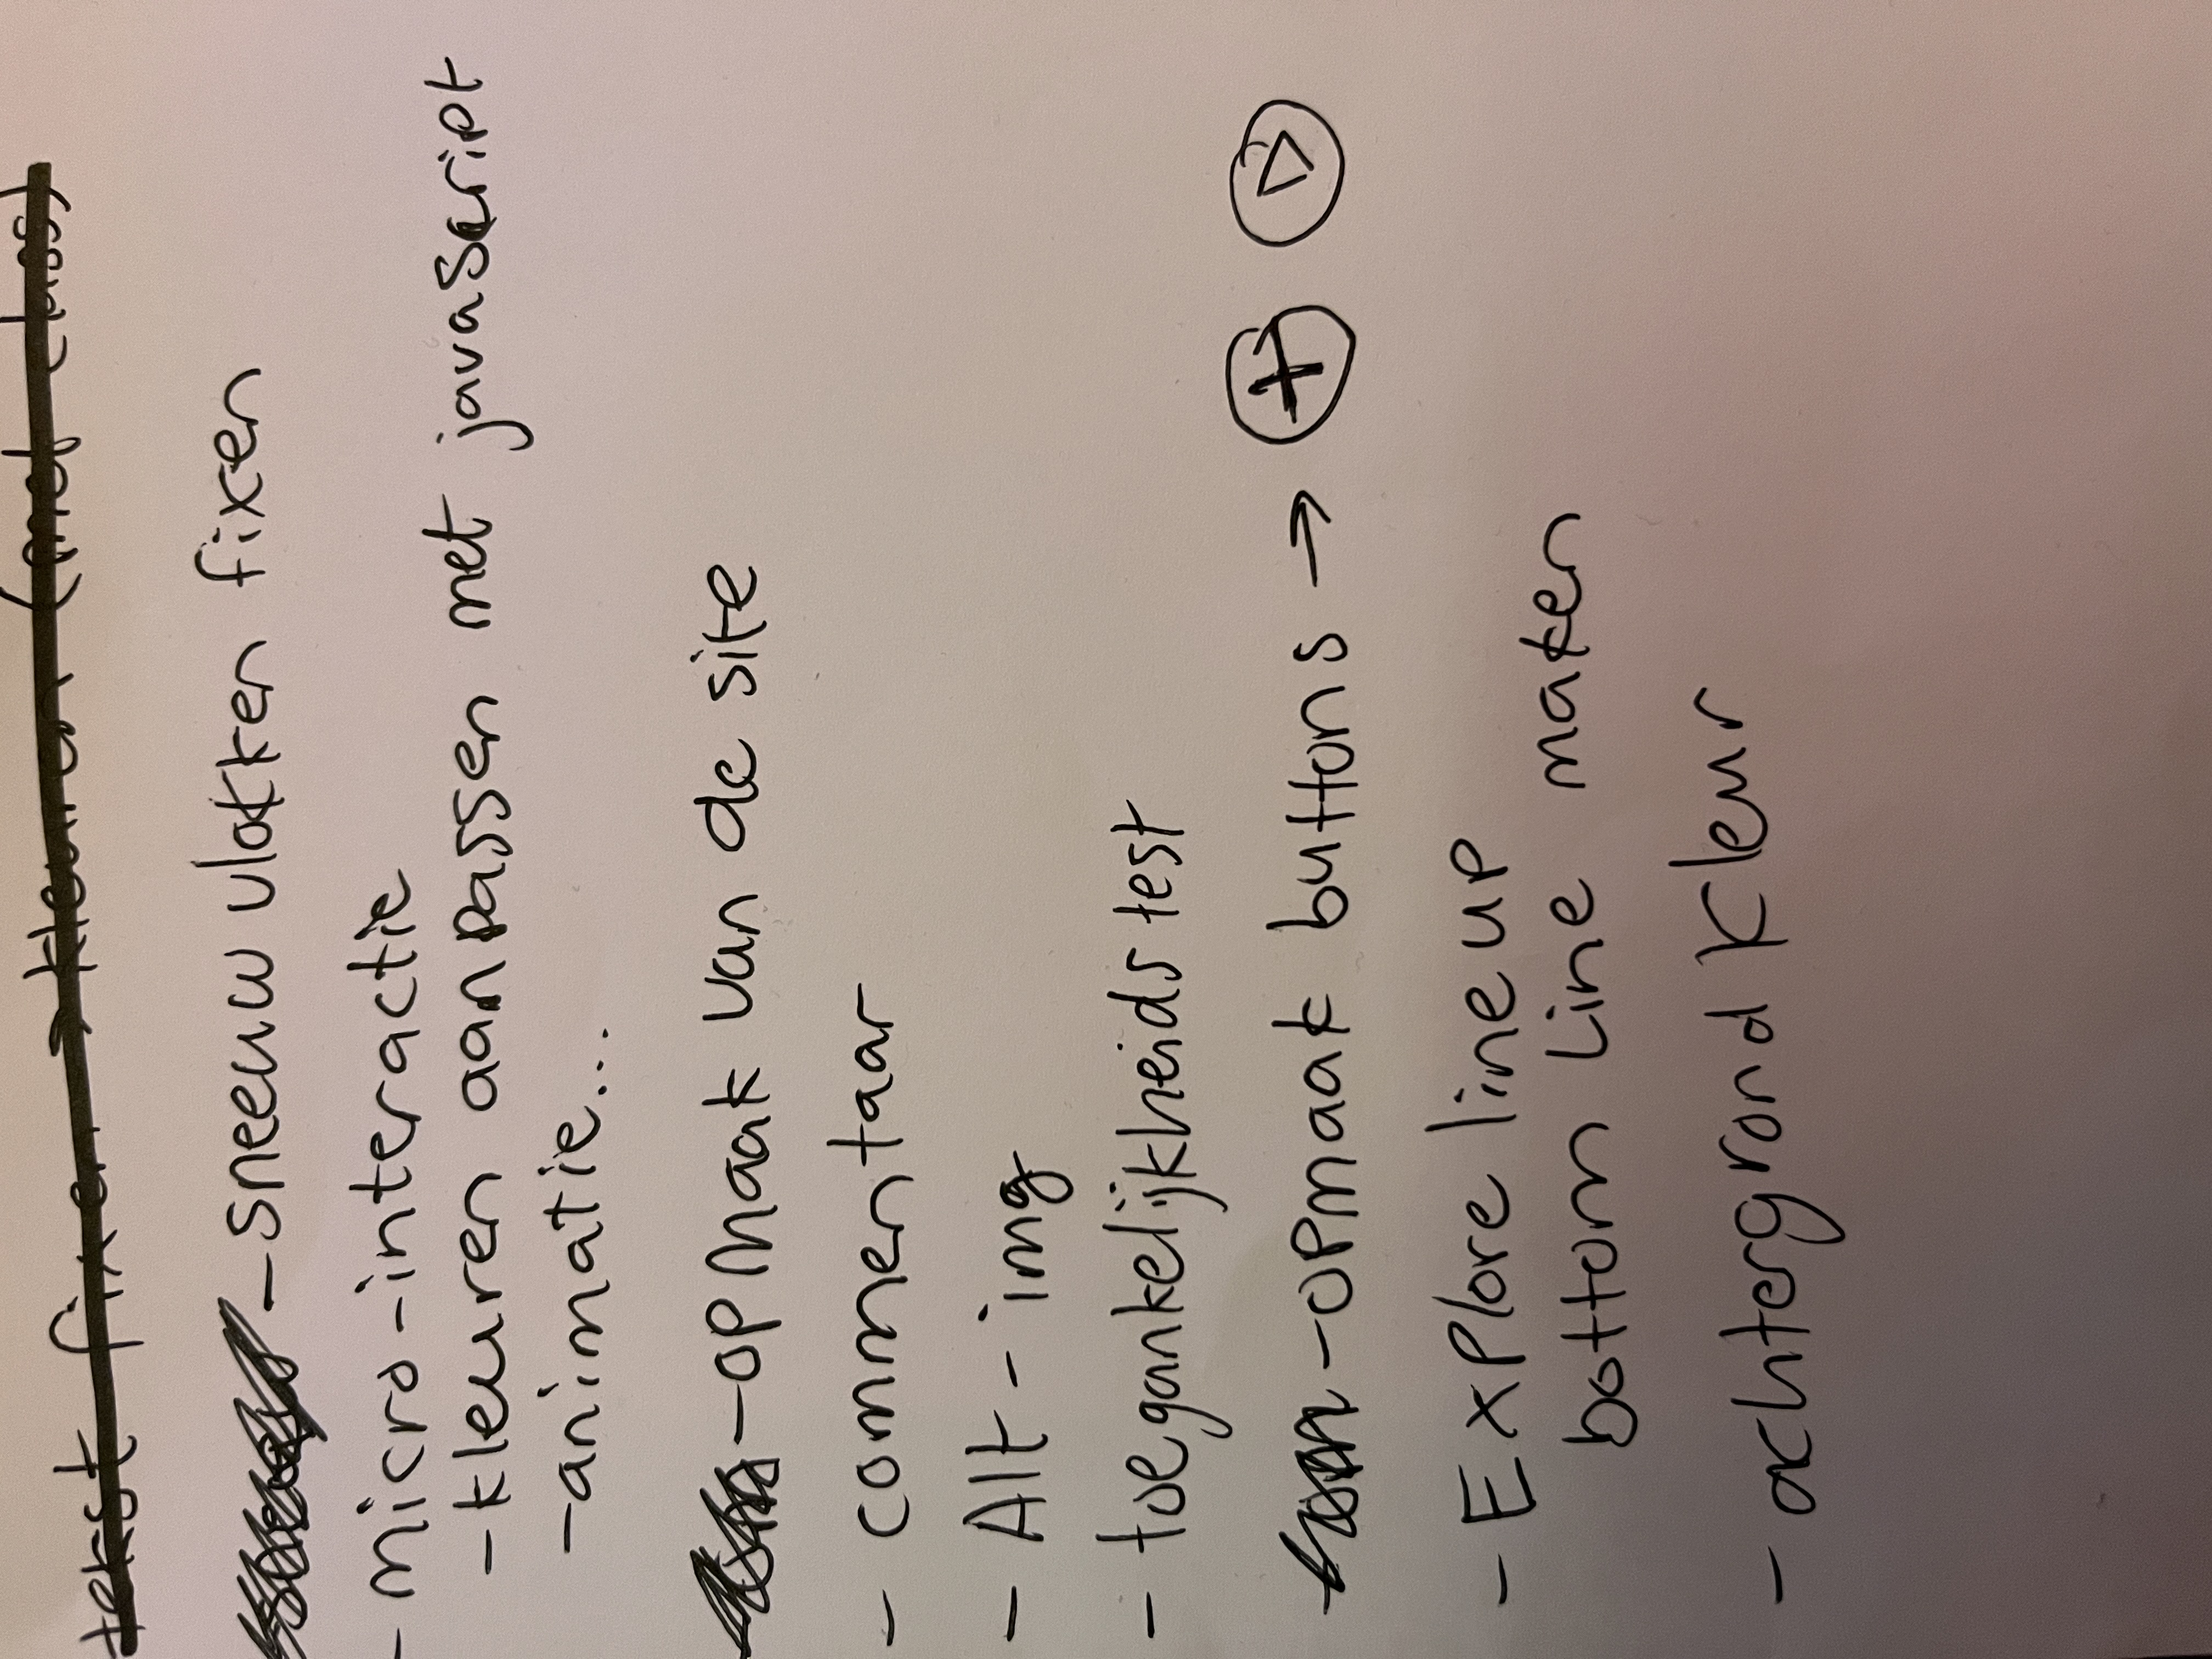 tekst fixen → kleuren (met class)
- sneeuw vlokken fixen
- micro-interactie
- kleuren aanpassen met javascript
- animatie...
- opmaak van de site
- commentaar
- Alt - img
- toegankelijkheids test
- opmaak buttons → + ▷
- Explore line up
bottom line maken
- achtergrond kleur